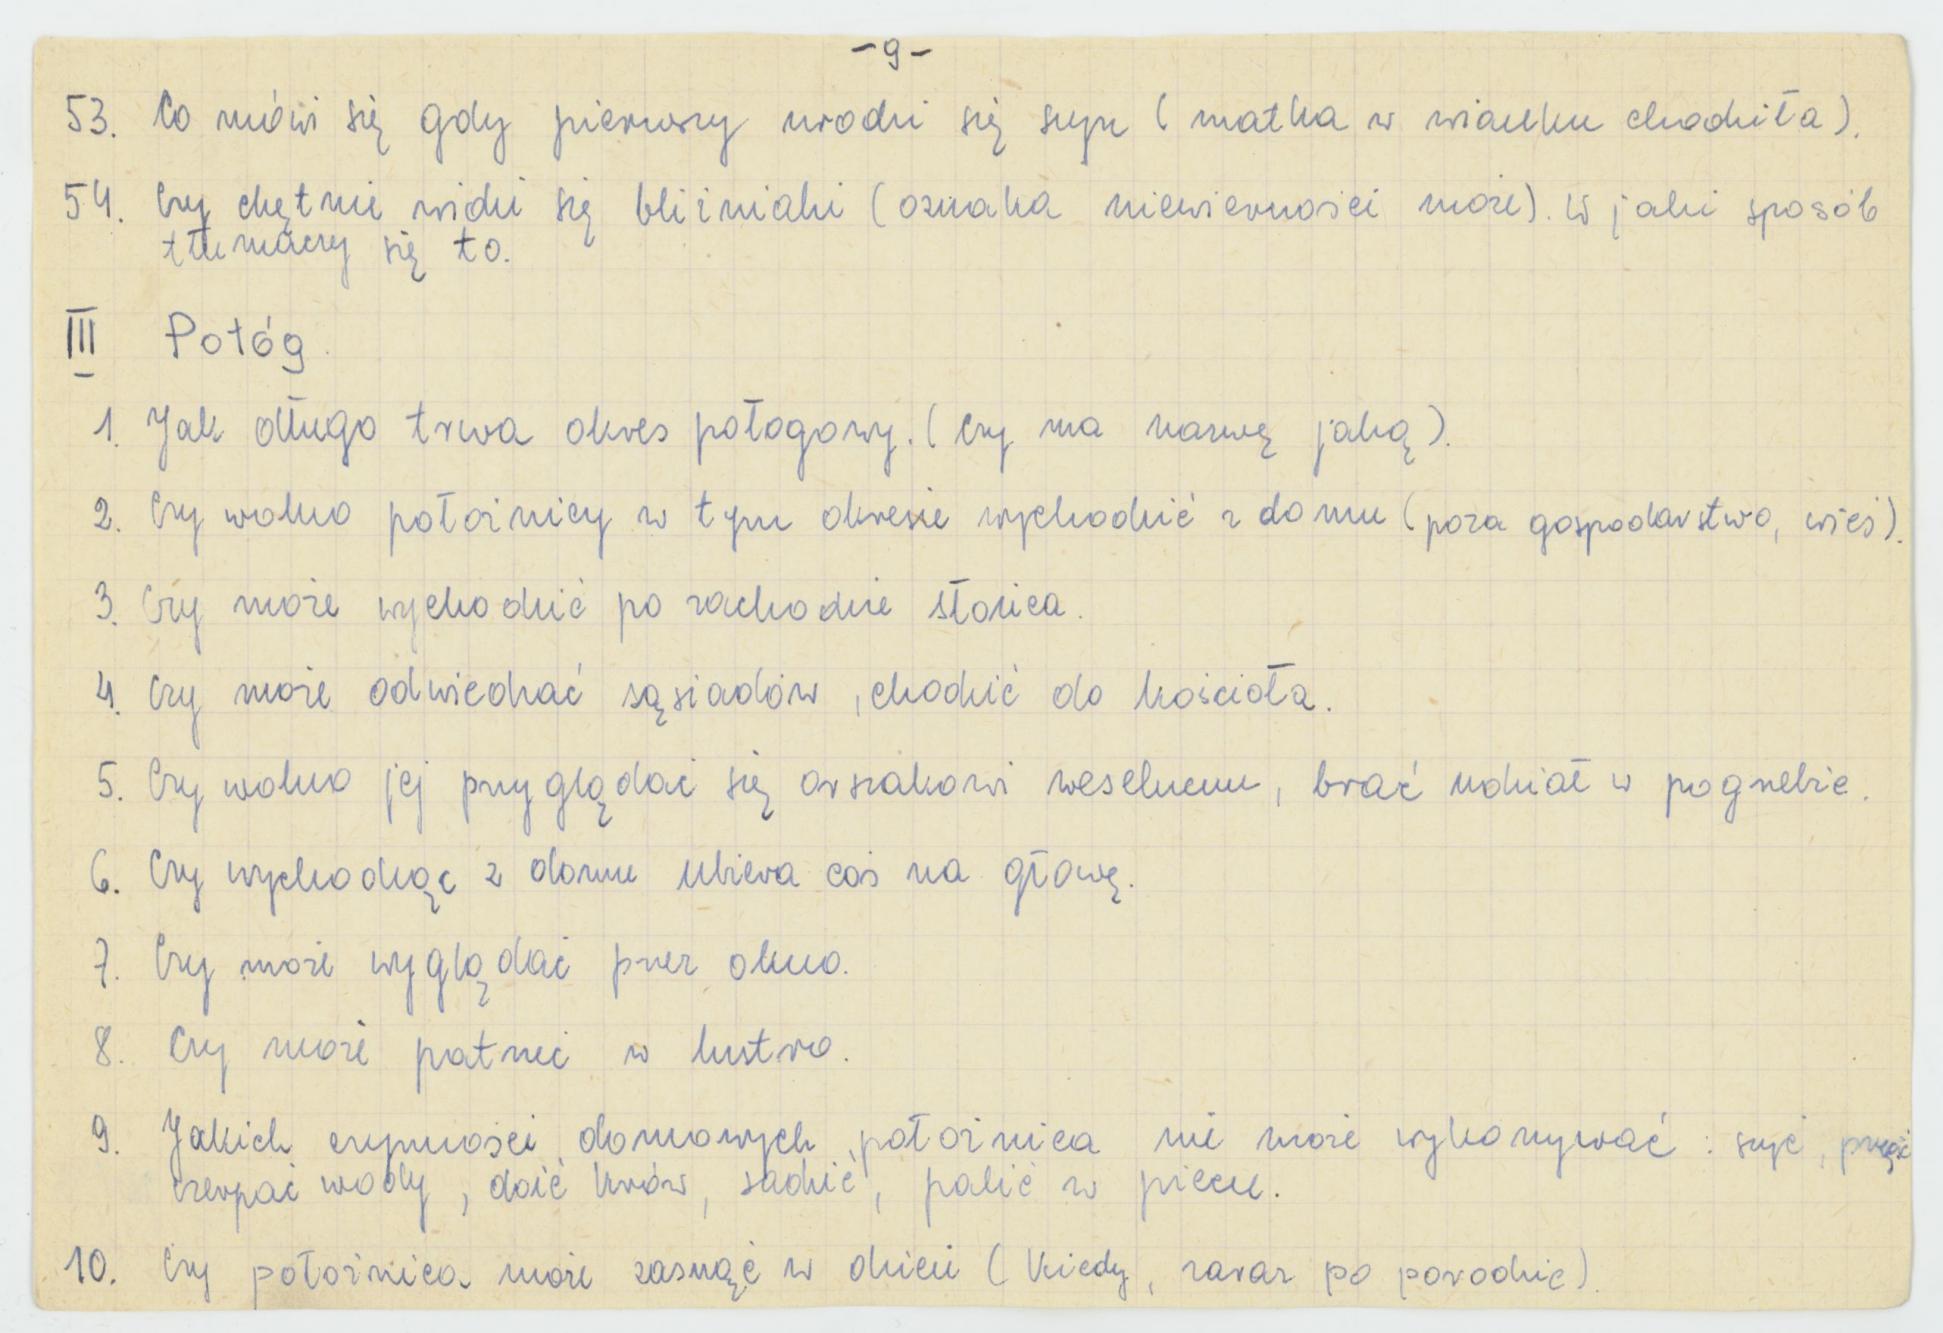 -9-
53. Co mówi się gdy pierwszy urodzi się syn (matka w wianku chodziła).
54. Czy chętnie widzi się bliźniaki (oznaka niewierności może). W jaki sposób
tłumaczy się to.
III Połóg.
1. Jak długo trwa okres połogowy. (Czy ma nazwę jaką).
2. Czy wolno położnicy w tym okresie wychodzić z domu (poza gospodarstwo, wieś).
3. Czy może wychodzić po zachodzie słońca.
4. Czy może odwiedzać sąsiadów, chodzić do kościoła.
5. Czy wolno jej przyglądać się orszakowi weselnemu, brać udział w pogrzebie.
6. Czy wychodząc z domu ubiera coś na głowę.
7. Czy może wyglądać przez okno.
8. Czy może patrzeć w lustro.
9. Jakich czynności domowych położnica nie może wykonywać: szyć, prząść
czerpać wody, doić krów, sadzić, palić w piecu.
10. Czy położnica może zasnąć w dzień (Kiedy, zaraz po porodzie).